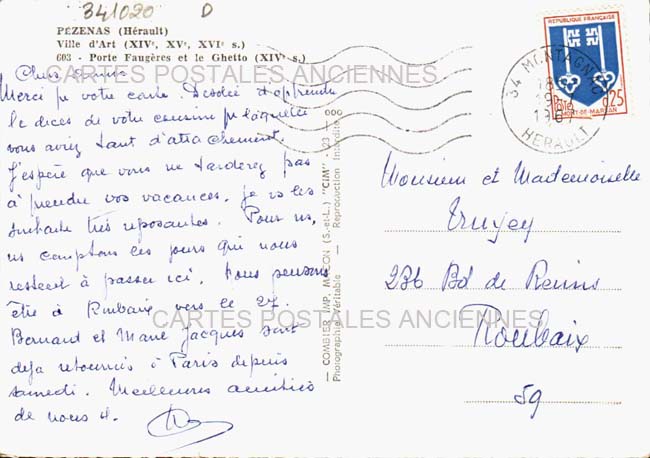 341020 D
PÉZENAS (Hérault)
Ville d'Art (XIVe, XVe, XVIe s.)
603 - Porte Faugères et le Ghetto (XIVe s.)
Chers amis
Merci pr votre carte. Désolée d'apprendre
le décès de votre cousin pr laquelle
vous aviez tant d'attachement.
J'espère que vous ne tarderez pas
à prendre vos vacances, je vs les
souhaite très reposantes. Pour ns,
ns comptons les jours qui nous
restent à passer ici. Nous pensons
être à Roubaix vers le 27.
Bernard et Marie Jacques sont
déjà retournés à Paris depuis
samedi. Meilleures amitiés
de nous 4.
COMBIER IMP. MACON (S.-et-L.) "CIM"
Photographie Véritable - Reproduction Interdite
REPUBLIQUE FRANÇAISE
POSTES 0,25
MONT-DE-MARSAN
34 MONTAGNAC
HERAULT
Monsieur et Mademoiselle
236 Bd de Reims
Roubaix
59
CARTES POSTALES ANCIENNES
CARTES POSTALES ANCIENNES